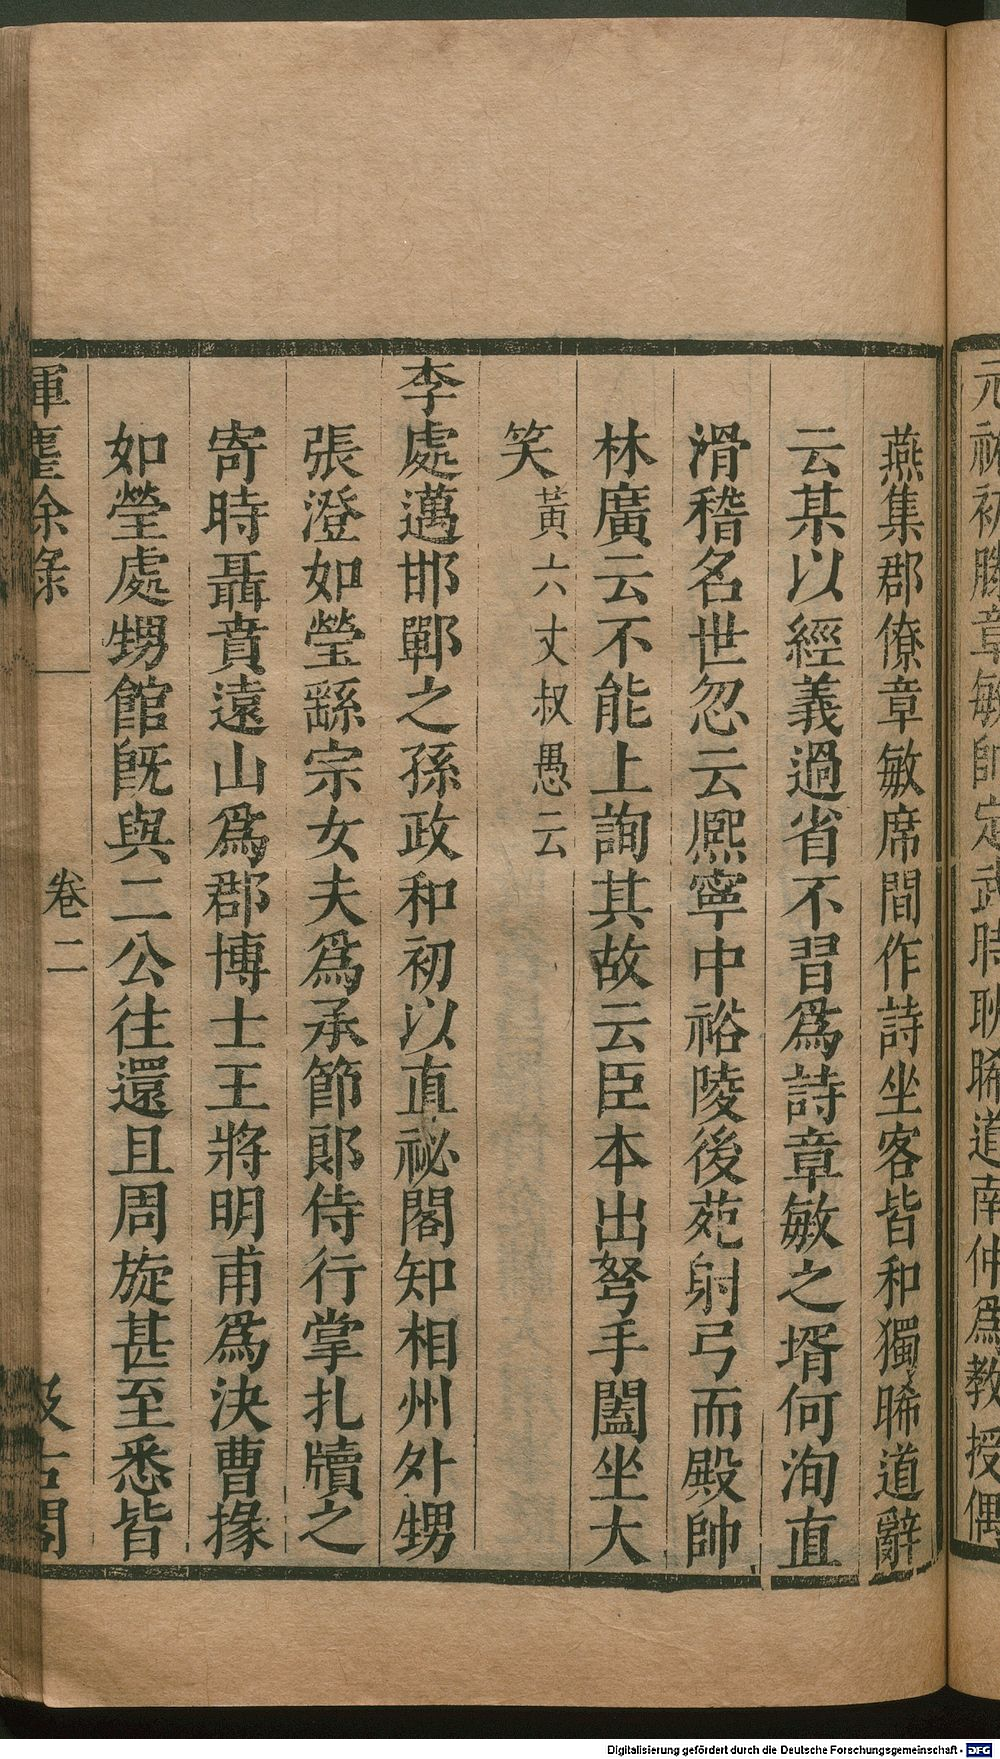 元祐初滕章敏帥定武時耿晞道南仲爲教授偶
燕集郡僚章敏席間作詩坐客皆和獨晞道辭
云某以經義過省不習爲詩章敏之壻何洵直
滑稽名世忽云熈寧中裕陵後苑射弓而殿帥
林廣云不能上詢其故云臣本出弩手闔坐大
笑黃六丈叔愚云
李處邁邯鄲之孫政和初以直祕閣知相州外甥
張澄如瑩繇宗女夫爲承節郎侍行掌扎牘之
寄時聶賁遠山爲郡博士王將明甫爲決曹掾
如瑩處甥館旣與二公往還且周旋甚至悉皆
揮麈余錄 卷二 汲古閣
Digitalisierung gefördert durch die Deutsche Forschungsgemeinschaft - DFG